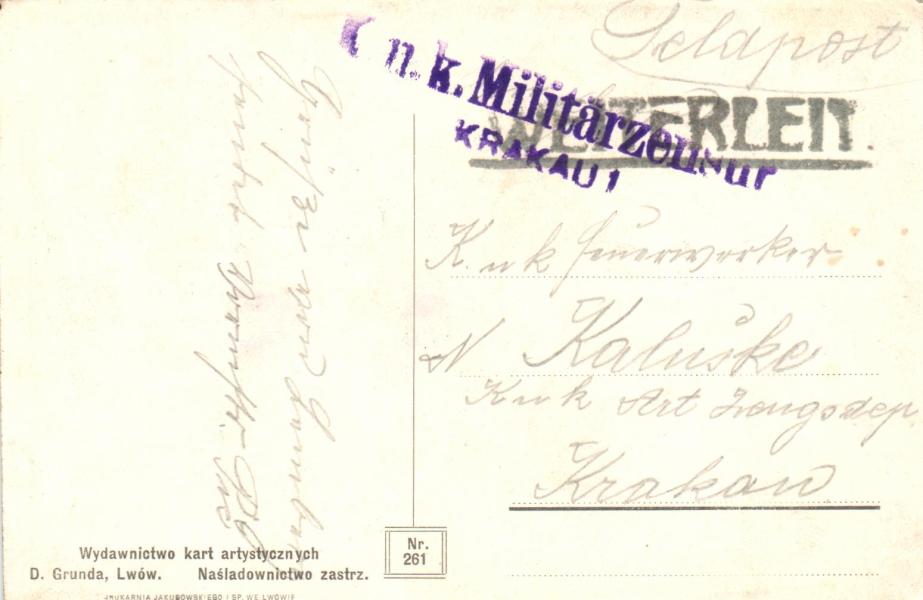 Feldpost
K. u. k. Militärzensur
KRAKAU 1
WEITERLEIT.
K. u k Feuerwerker
N Kaluške
K u k Art Zeugsdep.
Krakau
Grüße von Lemberg
sendet
Wydawnictwo kart artystycznych
D. Grunda, Lwów. Naśladownictwo zastrz.
Nr.
261
DRUKARNIA JAKUBOWSKIEGO I SP. WE LWOWIE